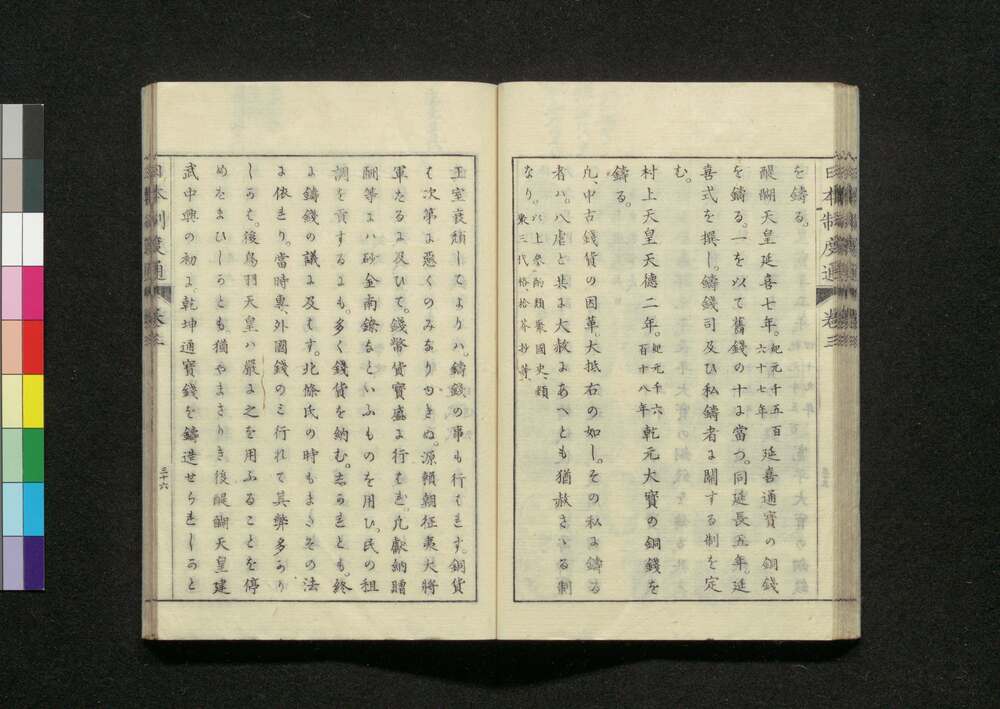 日本制度通
卷三
を鑄る。
醍醐天皇延喜七年。紀元千五百六十七年延喜通寶の銅錢
を鑄る。一を以て舊錢の十に當つ。同延長五年。延
喜式を撰し。鑄錢司及ひ私鑄者に關する制を定
む。
村上天皇天德二年。紀元千六百十八年乾元大寶の銅錢を
鑄る。
凢、中古錢貨の因革、大抵右の如し。その私に鑄る
者ハ。八虐と共に大赦にあへとも猶赦さゝる制
なり。以上參酌類聚國史、類聚三代格、拾芥抄等、
王室衰頽してよりハ。鑄錢の事も行はれす。銅貨
は次第に惡くのみなりゆきぬ。源賴朝征夷大將
軍たるに及ひて。錢幣貨寶盛に行はる。凢獻納贈
酬等にハ砂金南鐐なといふものを用ひ。民の租
調を貢するにも。多く錢貨を納む。志かれとも。終
に鑄錢の議に及はす。北條氏の時もまたその法
に依れり。當時專、外國錢のミ行れて其弊多かり
しかは。後鳥羽天皇ハ嚴に之を用ふることを停
めたまひしかとも。猶やまさりき後醍醐天皇建
武中興の初に。乾坤通寶錢を鑄造せられしかと
三十六
日本制度通
卷三